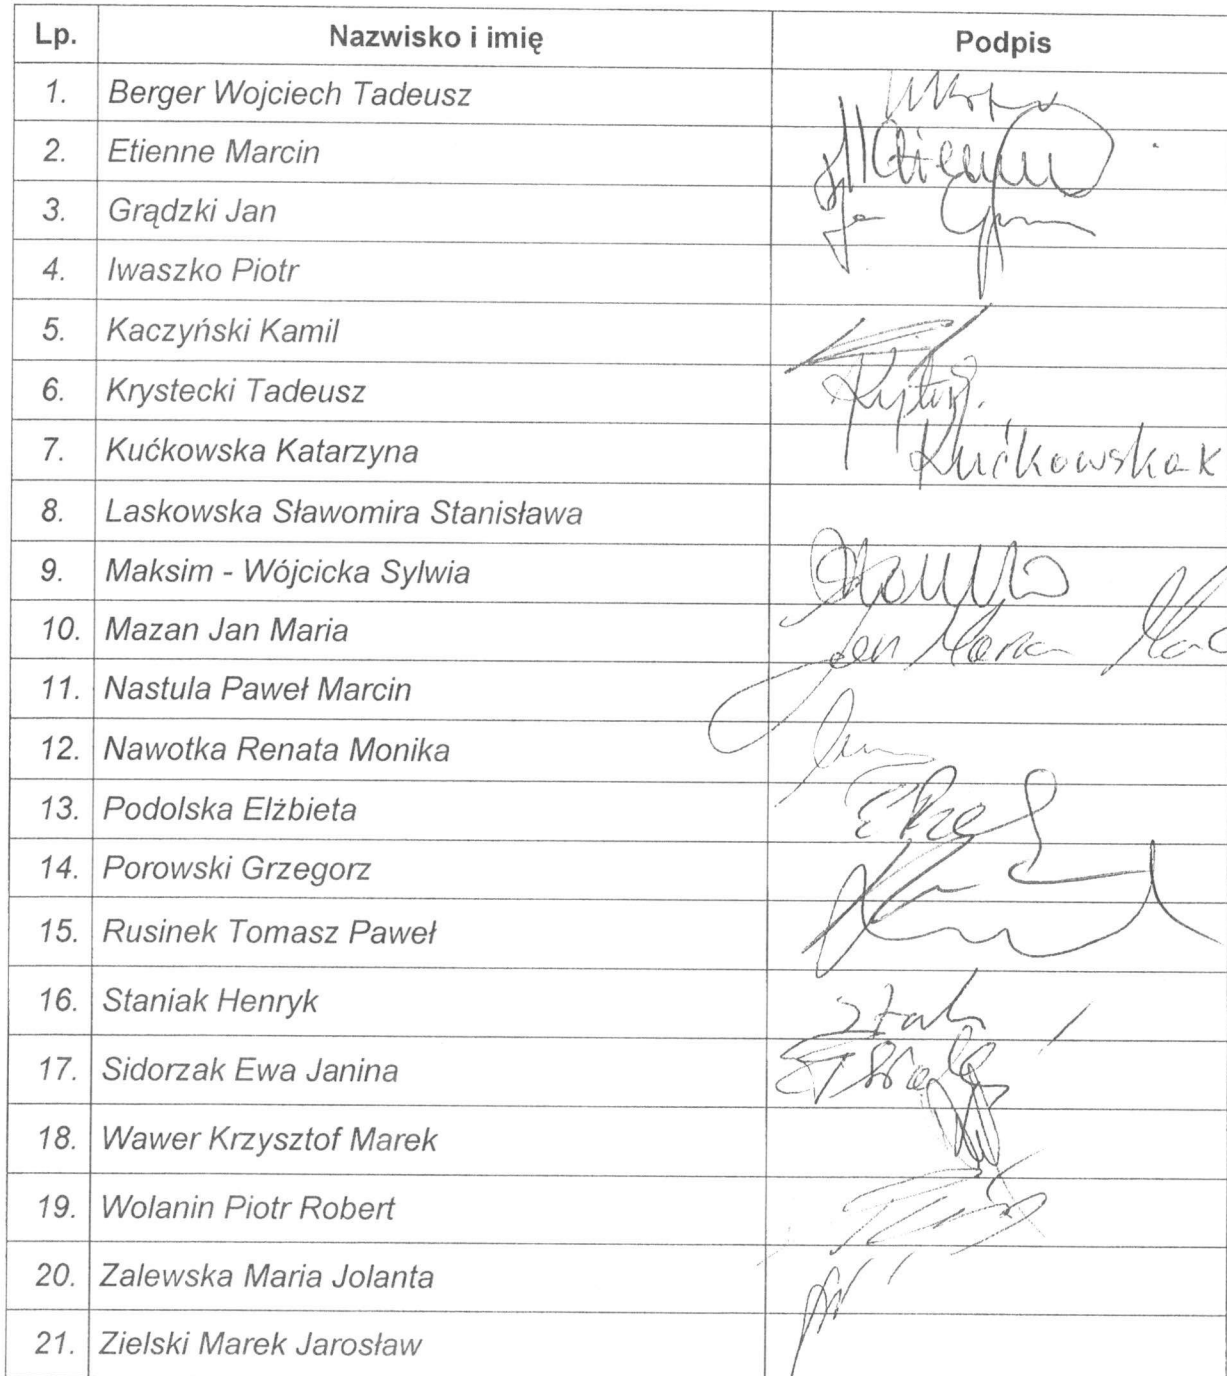 Lp. Nazwisko i imię Podpis
1. Berger Wojciech Tadeusz
2. Etienne Marcin
3. Grądzki Jan
4. Iwaszko Piotr
5. Kaczyński Kamil
6. Krystecki Tadeusz
7. Kućkowska Katarzyna Kućkowska K
8. Laskowska Sławomira Stanisława
9. Maksim - Wójcicka Sylwia
10. Mazan Jan Maria Jan Maria
11. Nastula Paweł Marcin
12. Nawotka Renata Monika
13. Podolska Elżbieta
14. Porowski Grzegorz
15. Rusinek Tomasz Paweł
16. Staniak Henryk
17. Sidorzak Ewa Janina
18. Wawer Krzysztof Marek
19. Wolanin Piotr Robert
20. Zalewska Maria Jolanta
21. Zielski Marek Jarosław